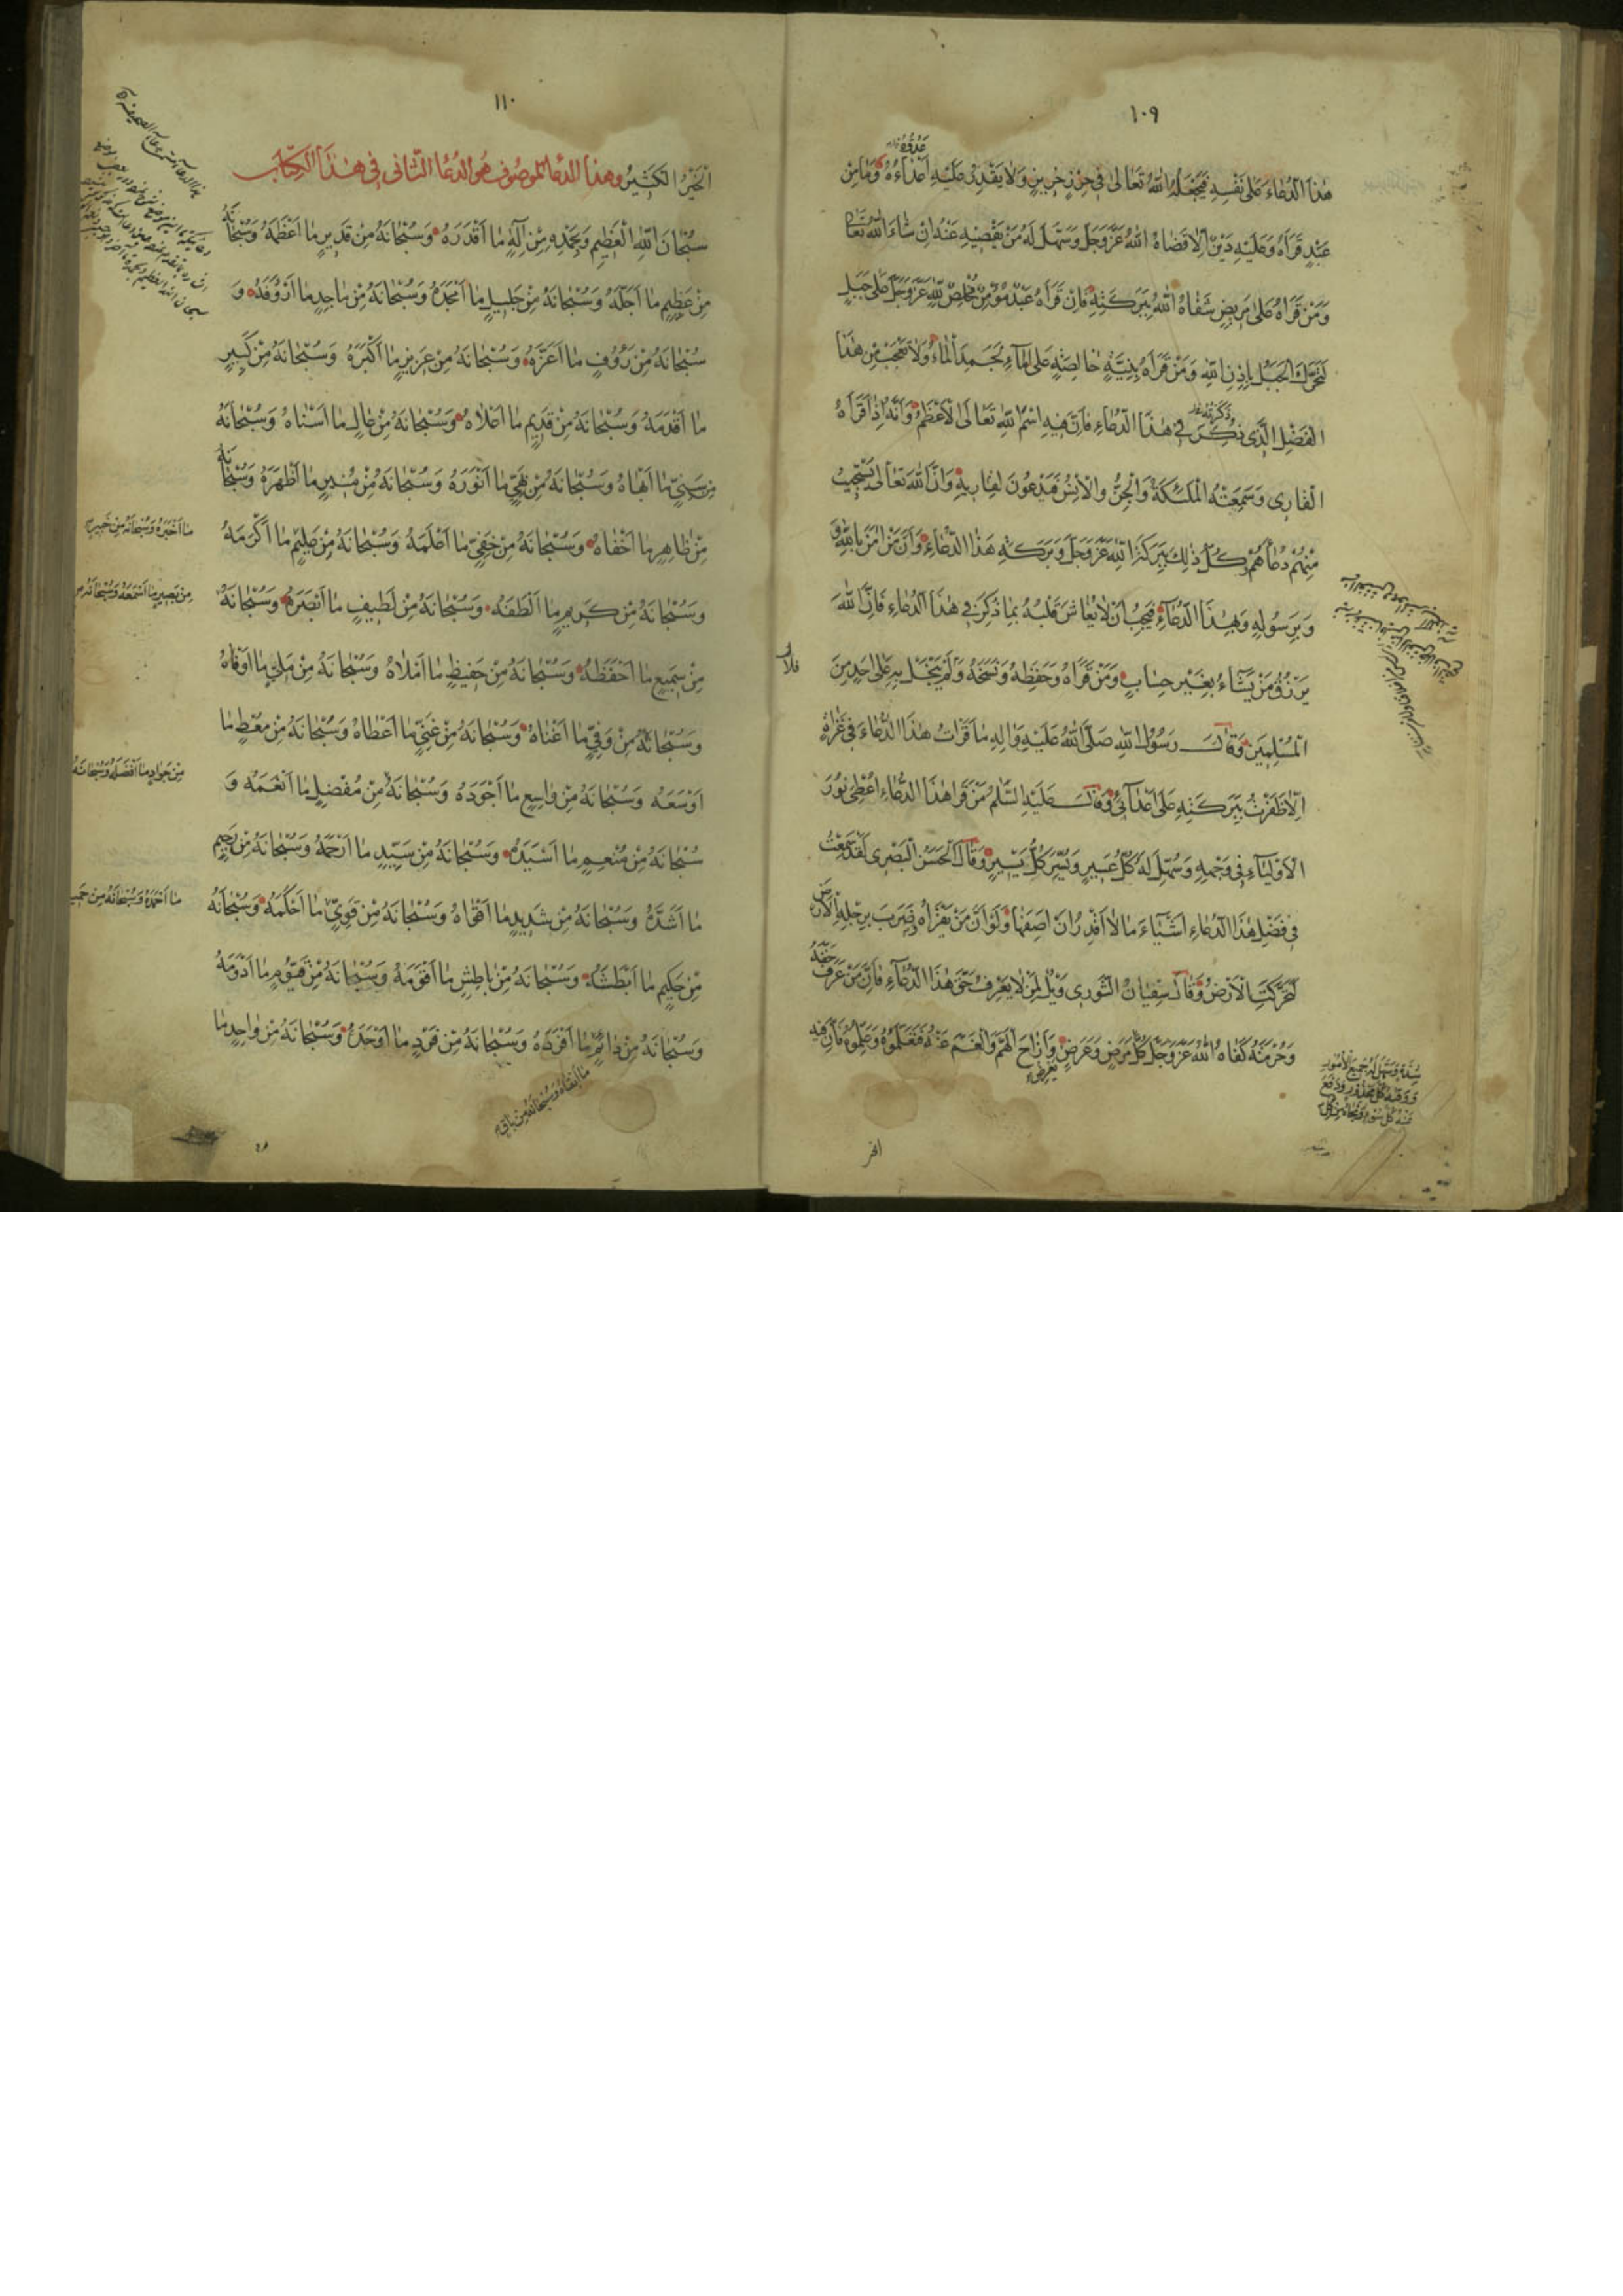 ١٠٩
هٰذَا الدُّعَاءَ عَلٰى نَفْسِهِ فَيَجْعَلُهُ اللّٰهُ تَعَالٰى فِي حِرْزٍ حَرِيزٍ وَلَا يَقْدِرُ عَلَيْهِ اَعْدَاءُهُ وَمَا مِنْ
عَبْدٍ قَرَاَهُ وَعَلَيْهِ دَيْنٌ اِلَّا قَضَاهُ اللّٰهُ عَزَّ وَجَلَّ وَسَهَّلَ لَهُ مَنْ يَقْضِيهِ عَنْهُ اِنْ شَاءَ اللّٰهُ تَعَالٰى
وَمَنْ قَرَاَهُ عَلٰى مَرِيضٍ شَفَاهُ اللّٰهُ بِبَرَكَتِهِ فَاِنْ قَرَاَهُ عَبْدٌ مُؤْمِنٌ مُخْلِصٌ لِلّٰهِ عَزَّ وَجَلَّ عَلٰى جَبَلٍ
لَتَحَرَّكَ الْجَبَلُ بِاِذْنِ اللّٰهِ وَمَنْ قَرَاَهُ بِنِيَّةٍ خَالِصَةٍ عَلَى الْمَاءِ لَجَمَدَ الْمَاءُ وَلَا تَعْجَبْ مِنْ هٰذَا
الْفَضْلِ الَّذِي ذَكَرْتُهُ فِي هٰذَا الدُّعَاءِ فَاِنَّ فِيهِ اسْمَ اللّٰهِ تَعَالَى الْاَعْظَمُ وَاَنَّهُ اِذَا قَرَاَهُ
الْقَارِي وَسَمِعَتْهُ الْمَلٰئِكَةُ وَالْجِنُّ وَالْاِنْسُ فَيَدْعُونَ لِقَارِيهِ وَاِنَّ اللّٰهَ تَعَالٰى يَسْتَجِيبُ
مِنْهُمْ دُعَاءَهُمْ وَكُلُّ ذٰلِكَ بِبَرَكَةِ اللّٰهِ عَزَّ وَجَلَّ وَبَرَكَةِ هٰذَا الدُّعَاءِ وَاَنَّ مَنْ اٰمَنَ بِاللّٰهِ وَ
وَبِرَسُولِهِ وَبِهٰذَا الدُّعَاءِ فَيَجِبُ اَنْ لَا يُغَاشَ قَلْبُهُ بِمَا ذُكِرَ فِي هٰذَا الدُّعَاءِ فَاِنَّ اللّٰهَ
يَرْزُقُ مَنْ يَشَاءُ بِغَيْرِ حِسَابٍ وَمَنْ قَرَاَهُ وَحَفِظَهُ وَنَسَخَهُ وَلَمْ يَبْخَلْ بِهِ عَلٰى اَحَدٍ مِنَ
الْمُسْلِمِينَ وَقَالَ رَسُولُ اللّٰهِ صَلَّى اللّٰهُ عَلَيْهِ وَاٰلِهِ مَا قَرَاْتُ هٰذَا الدُّعَاءَ فِي غَزَاةٍ
اِلَّا ظَفَرْتُ بِبَرَكَتِهِ عَلٰى اَعْدَائِي وَقَالَ عَلَيْهِ السَّلٰمُ مَنْ قَرَاَ هٰذَا الدُّعَاءَ اُعْطِيَ نُورَ
الْاَوْلِيَاءِ فِي وَجْهِهِ وَسُهِّلَ لَهُ كُلُّ عَسِيرٍ وَيُسِّرَ كُلُّ يَسِيرٍ وَقَالَ الْحَسَنُ الْبَصْرِي لَقَدْ سَمِعْتُ
فِي فَضْلِ هٰذَا الدُّعَاءِ اَشْيَاءَ مَا لَا اَقْدِرُ اَنْ اَصِفَهَا وَلَوْ اَنَّ مَنْ يَقْرَاُهُ ضَرَبَ بِرِجْلِهِ الْاَرْضَ
لَتَحَرَّكَتِ الْاَرْضُ وَقَالَ سُفْيَانُ الثَّوْرِي وَيْلٌ لِمَنْ لَا يَعْرِفُ حَقَّ هٰذَا الدُّعَاءِ فَاِنَّ مَنْ عَرَفَ حَقَّهُ
وَحُرْمَتَهُ كَفَاهُ اللّٰهُ عَزَّ وَجَلَّ كُلَّ مَرَضٍ وَعَرَضٍ وَاَزَاحَ الْهَمَّ وَالْغَمَّ عَنْهُ فَتَعَلَّمُوهُ وَعَلِّمُوهُ فَاِنَّ فِيهِ
شِدَّةٍ وَسَهَّلَ لَهُ جَمِيعَ الْاُمُورِ
وَوَقَتْهُ كُلَّ مَحْذُورٍ وَدَفَعَ
عَنْهُ كُلَّ سُوءٍ وَنَجَّاهُ مِنْ كُلِّ
١١٠
الْخَيْرُ الْكَثِيرُ وهٰذا الدعا الموصُوف هُو الدُعَا الثّاني فِي هٰذَا الكِتَاب
سُبْحَانَ اللّٰهِ الْعَظِيمِ وَبِحَمْدِهِ مِنْ اِلٰهٍ مَا اَقْدَرَهُ وَسُبْحَانَهُ مِنْ قَدِيرٍ مَا اَعْظَمَهُ وَسُبْحَانَهُ
مِنْ عَظِيمٍ مَا اَجَلَّهُ وَسُبْحَانَهُ مِنْ جَلِيلٍ مَا اَمْجَدَهُ وَسُبْحَانَهُ مِنْ مَاجِدٍ مَا اَرْؤُفَهُ وَ
سُبْحَانَهُ مِنْ رَؤُوفٍ مَا اَعَزَّهُ وَسُبْحَانَهُ مِنْ عَزِيزٍ مَا اَكْبَرَهُ وَسُبْحَانَهُ مِنْ كَبِيرٍ
مَا اَقْدَمَهُ وَسُبْحَانَهُ مِنْ قَدِيمٍ مَا اَعْلَاهُ وَسُبْحَانَهُ مِنْ عَالٍ مَا اَسْنَاهُ وَسُبْحَانَهُ
مِنْ سَنِيٍّ مَا اَبْهَاهُ وَسُبْحَانَهُ مِنْ بَهِيٍّ مَا اَنْوَرَهُ وَسُبْحَانَهُ مِنْ مُنِيرٍ مَا اَظْهَرَهُ وَسُبْحَانَهُ
مِنْ ظَاهِرٍ مَا اَخْفَاهُ وَسُبْحَانَهُ مِنْ خَفِيٍّ مَا اَعْلَمَهُ وَسُبْحَانَهُ مِنْ عَلِيمٍ مَا اَكْرَمَهُ
مَا اَخْبَرَهُ وَسُبْحَانَهُ مِنْ خَبِيرٍ
وَسُبْحَانَهُ مِنْ كَرِيمٍ مَا اَلْطَفَهُ وَسُبْحَانَهُ مِنْ لَطِيفٍ مَا اَبْصَرَهُ وَسُبْحَانَهُ
مِنْ بَصِيرٍ مَا اَسْمَعَهُ وَسُبْحَانَهُ
مِنْ سَمِيعٍ مَا اَحْفَظَهُ وَسُبْحَانَهُ مِنْ حَفِيظٍ مَا اَمْلَاهُ وَسُبْحَانَهُ مِنْ مَلِيٍّ مَا اَوْفَاهُ
وَسُبْحَانَهُ مِنْ وَفِيٍّ مَا اَغْنَاهُ وَسُبْحَانَهُ مِنْ غَنِيٍّ مَا اَعْطَاهُ وَسُبْحَانَهُ مِنْ مُعْطٍ مَا
اَوْسَعَهُ وَسُبْحَانَهُ مِنْ وَاسِعٍ مَا اَجْوَدَهُ وَسُبْحَانَهُ مِنْ مُفْضِلٍ مَا اَنْعَمَهُ وَ
مِنْ جَوَادٍ مَا اَفْضَلَهُ وَسُبْحَانَهُ
سُبْحَانَهُ مِنْ مُنْعِمٍ مَا اَسْيَدَهُ وَسُبْحَانَهُ مِنْ سَيِّدٍ مَا اَرْحَمَهُ وَسُبْحَانَهُ مِنْ رَحِيمٍ
مَا اَشَدَّهُ وَسُبْحَانَهُ مِنْ شَدِيدٍ مَا اَقْوَاهُ وَسُبْحَانَهُ مِنْ قَوِيٍّ مَا اَحْكَمَهُ وَسُبْحَانَهُ
مَا اَحْمَدَهُ وَسُبْحَانَهُ مِنْ حَمِيدٍ
مِنْ حَكِيمٍ مَا اَبْطَشَهُ وَسُبْحَانَهُ مِنْ بَاطِشٍ مَا اَقْوَمَهُ وَسُبْحَانَهُ مِنْ قَيُّومٍ مَا اَدْوَمَهُ
وَسُبْحَانَهُ مِنْ دَائِمٍ مَا اَفْرَدَهُ وَسُبْحَانَهُ مِنْ فَرْدٍ مَا اَوْحَدَهُ وَسُبْحَانَهُ مِنْ وَاحِدٍ مَا
مَا اَبْقَاهُ وَسُبْحَانَهُ مِنْ بَاقٍ